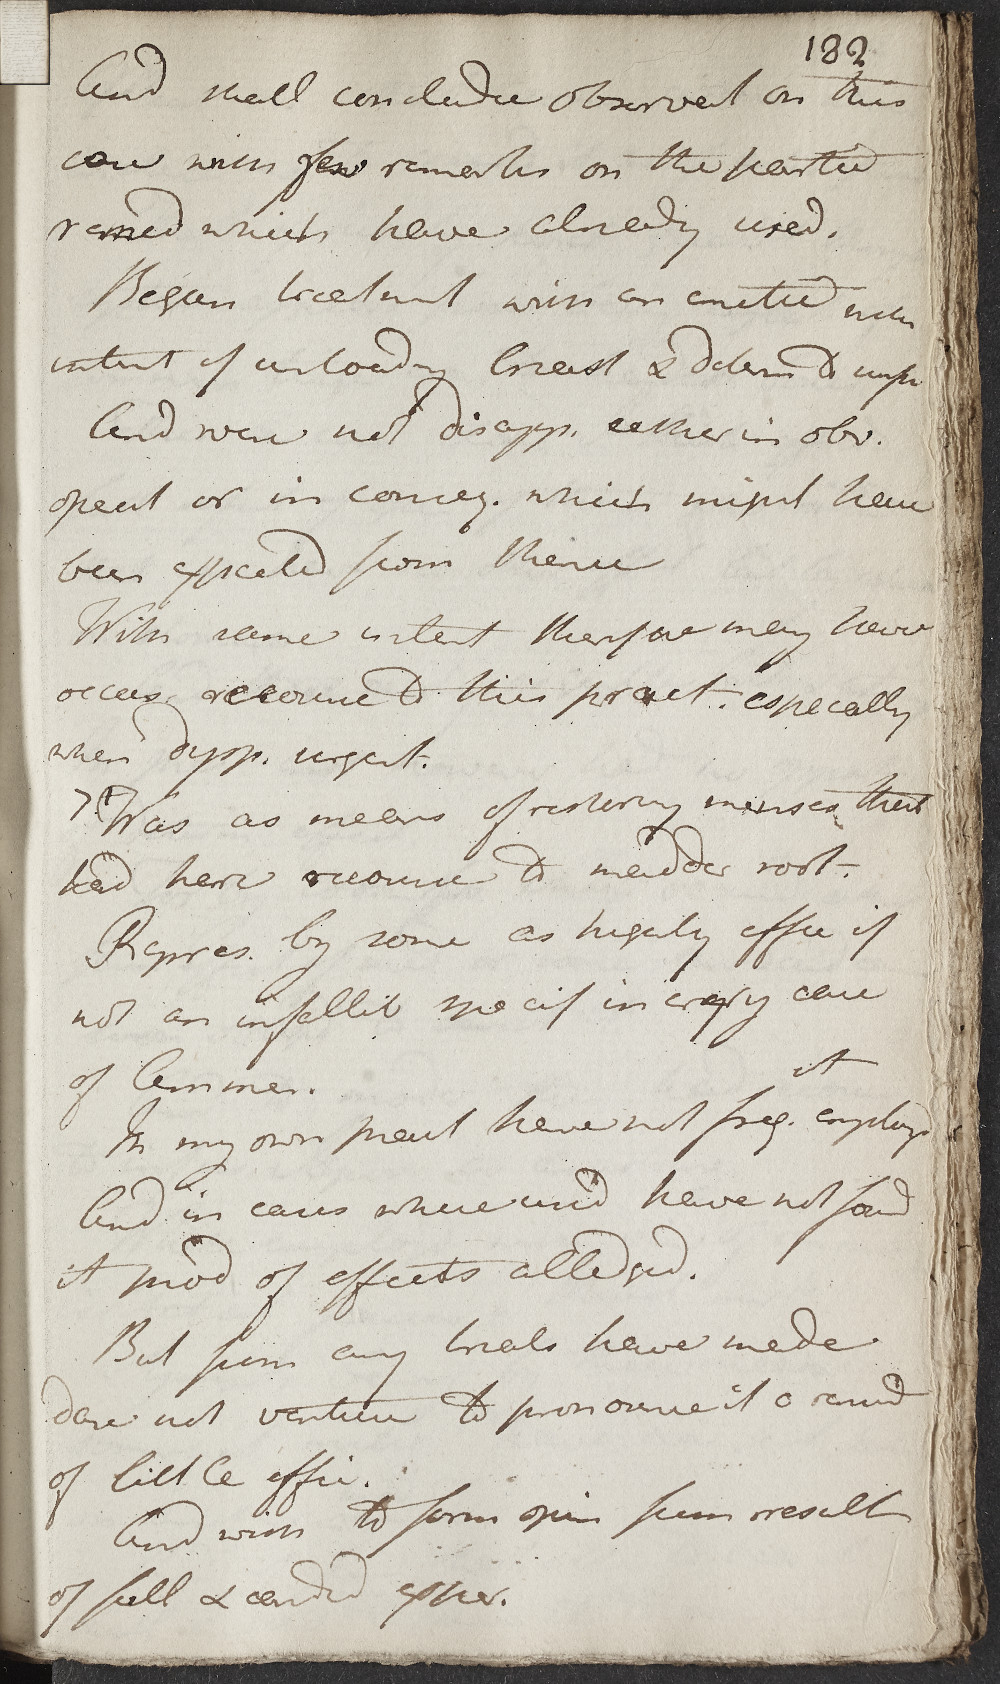 182
And shall conclude observat on this
case with few remarks on the partic
remed which have already used.
Began treatment with an emetic with
intent of unloading breast & determ to surface
And were not disapp. either in obv.
operat or in conseq. which might have
been expected from thence
With same intent therefore may have
occas. recourse to this pract. especially
when dysp. urgent.
7 Was as means of restoring menses that
had here recourse to madder root.
Repres. by some as highly effic if
not an infallib specif in every case
of Amenor.
it
In my own pract have not freq. employd
And in cases where used have not found
it prod of effects alledged.
But from any trials have made
dare not venture to pronounce it a remed
of little effic.
And wish to form opin from result
of full & candid exper.